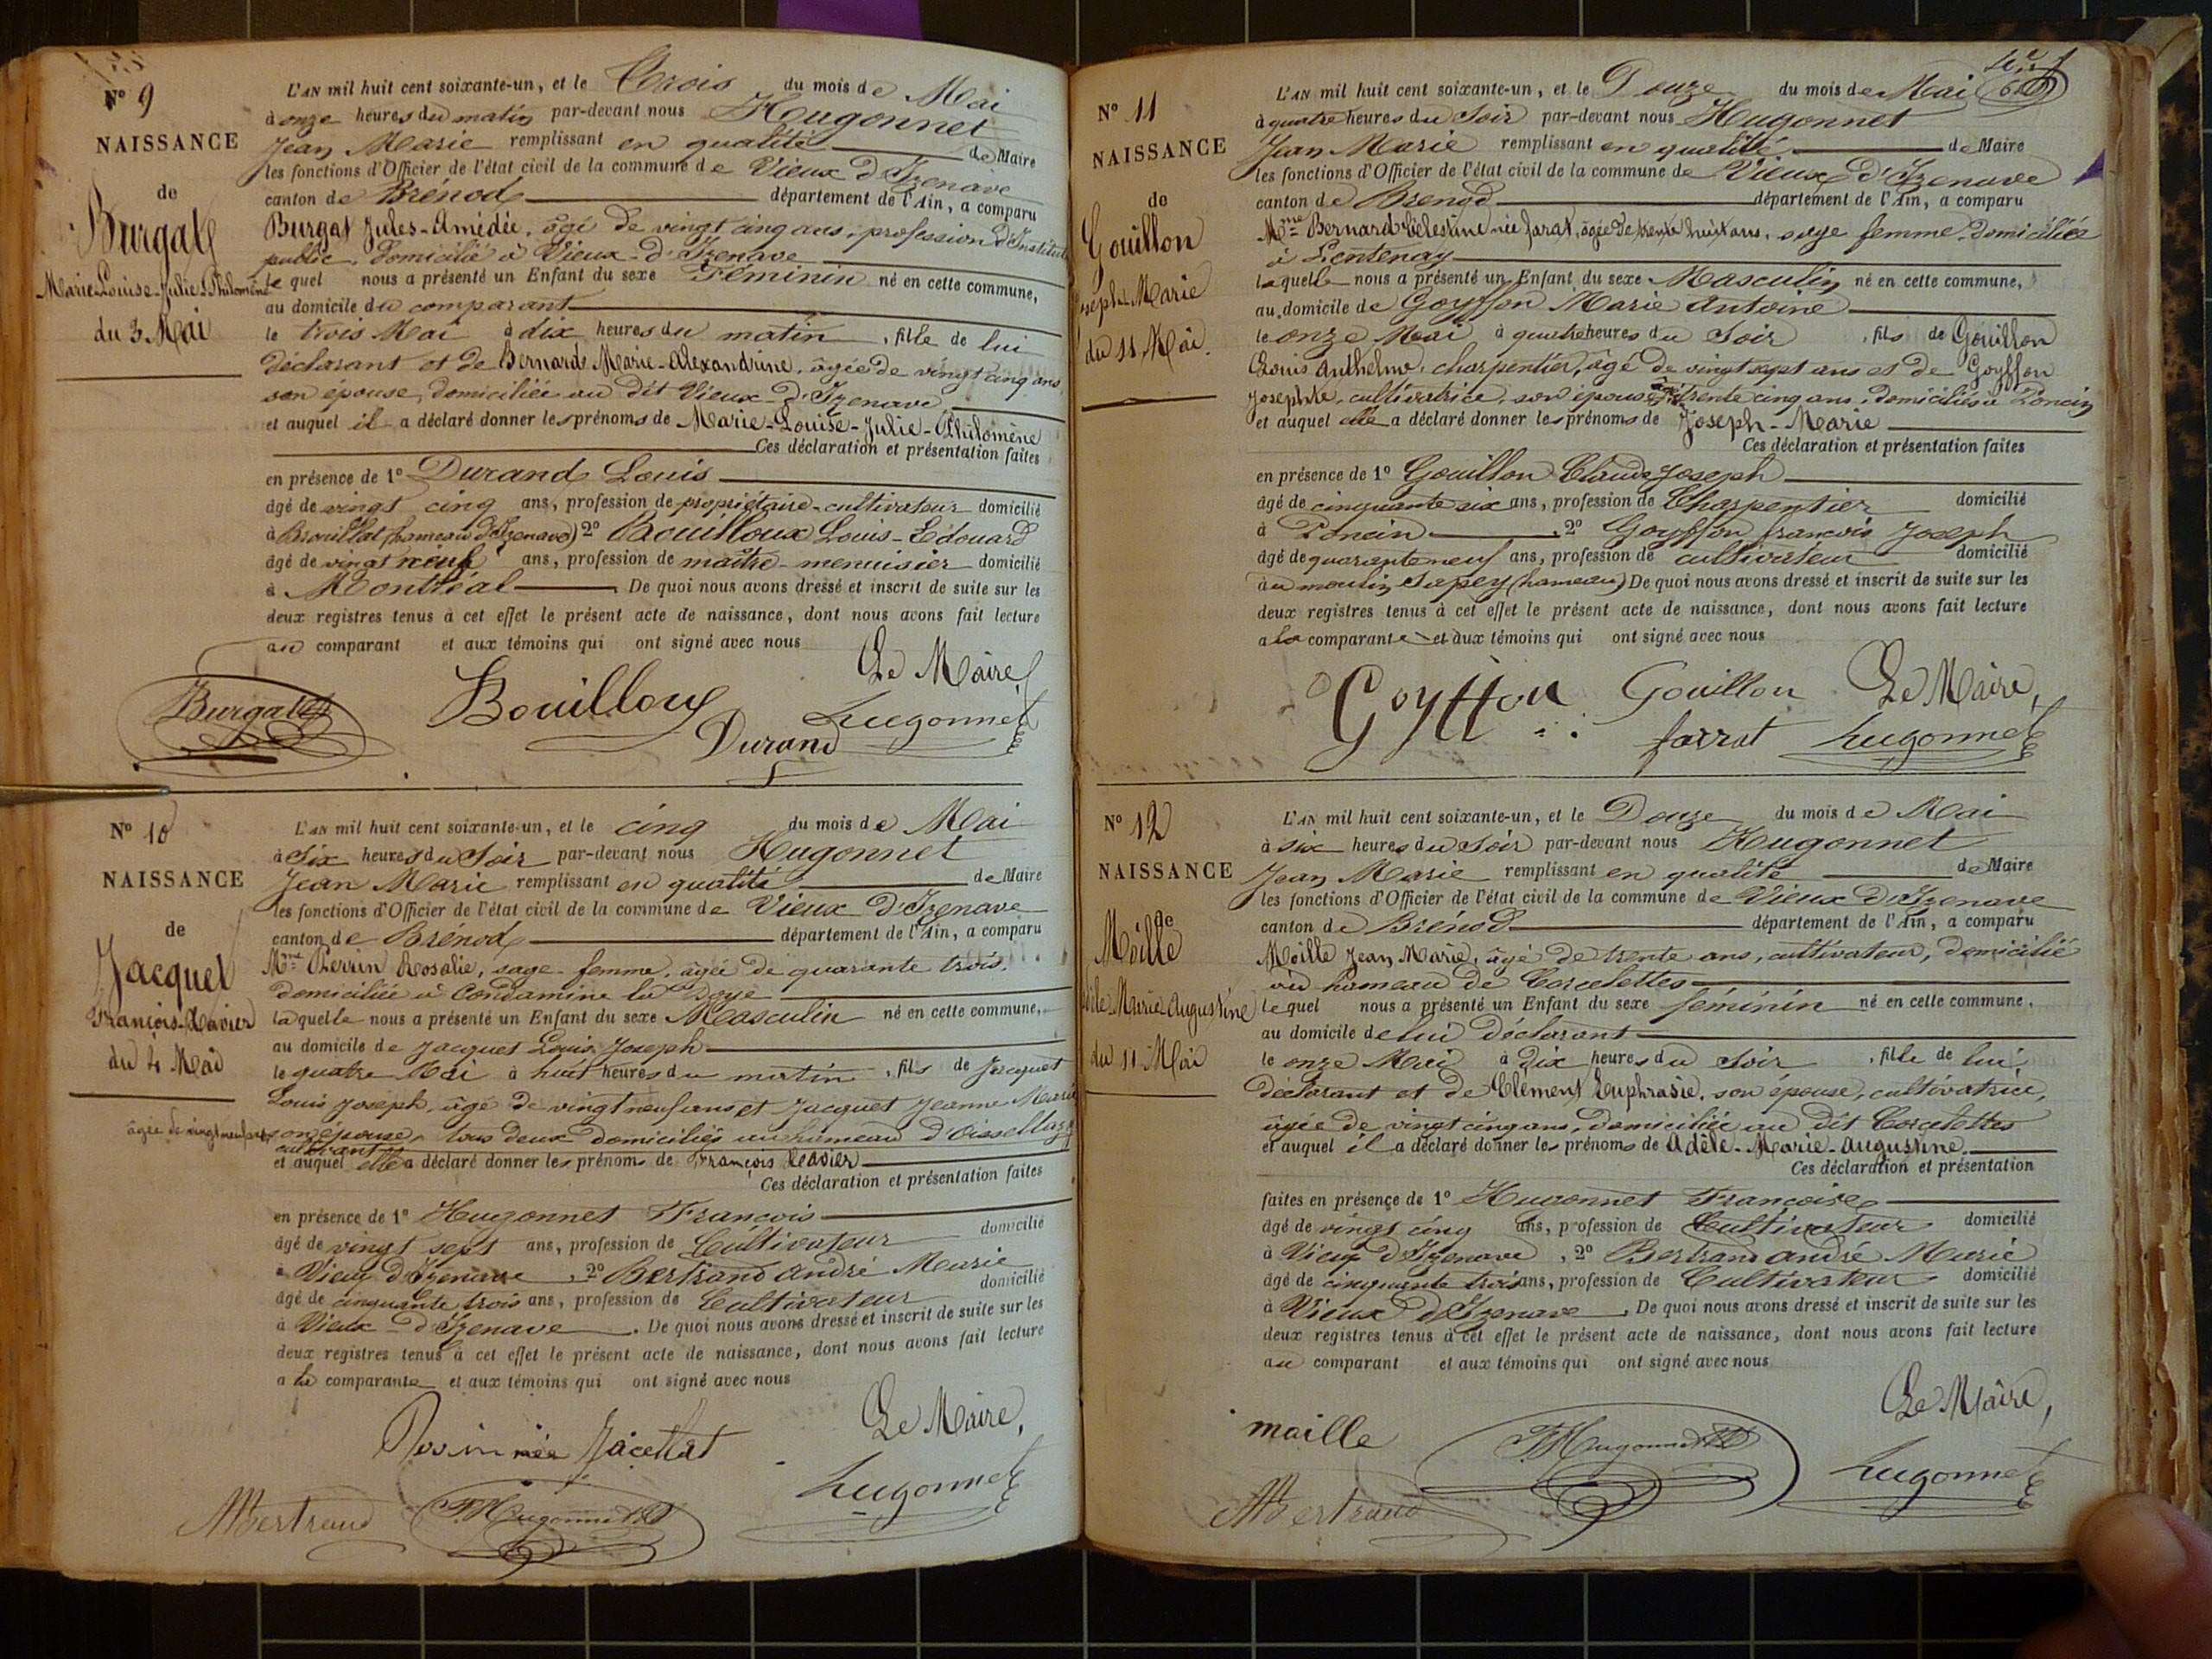 N° 9
NAISSANCE
de
Burgat
Marie-Louise-Julie-Philomène
du 3 Mai
L'AN mil huit cent soixante-un, et le Trois du mois de Mai
à onze heures du matin par-devant nous Hugonnet
Jean Marie remplissant en qualité de Maire
les fonctions d'Officier de l'état civil de la commune de Vieux d'Izenave
canton de Brénod département de l'Ain, a comparu
Burgat Jules-Amédée, âgé de vingt cinq ans, profession d'Institut
public, domicilié à Vieux-d'Izenave
le quel nous a présenté un Enfant du sexe Féminin né en cette commune,
au domicile du comparant
le trois Mai à dix heures du matin, fille de lui
déclarant et de Bernard Marie-Alexandrine, âgée de vingt cinq ans
son épouse, domiciliée au dit Vieux-d'Izenave
et auquel il a déclaré donner les prénoms de Marie-Louise-Julie-Philomène
Ces déclaration et présentation faites
en présence de 1° Durand Louis
âgé de vingt cinq ans, profession de propriétaire-cultivateur domicilié
à Brouillat (hameau d'Izenave) 2° Bouilloux Louis-Edouard
âgé de vingt neuf ans, profession de maître-menuisier domicilié
à Montréal De quoi nous avons dressé et inscrit de suite sur les
deux registres tenus à cet effet le présent acte de naissance, dont nous avons fait lecture
au comparant et aux témoins qui ont signé avec nous
Le Maire,
Burgat
Bouilloux
Durand
hugonnet
N° 10
NAISSANCE
de
Jacquet
François-Xavier
du 4 Mai
âgée de vingt neuf ans
L'AN mil huit cent soixante-un, et le cinq du mois de Mai
à Six heures du Soir par-devant nous Hugonnet
Jean Marie remplissant en qualité de Maire
les fonctions d'Officier de l'état civil de la commune de Vieux d'Izenave
canton de Brénod département de l'Ain, a comparu
Mme Perrin Rosalie, sage-femme, âgée de quarante trois,
domiciliée à Condamine la Doye
laquelle nous a présenté un Enfant du sexe Masculin né en cette commune,
au domicile de Jacquet Louis Joseph
le quatre Mai à huit heures du matin, fils de Jacquet
Louis Joseph, âgé de vingt neuf ans et Jacquet Jeanne Marie
son épouse, tous deux domiciliés au hameau d'Oisselaz
cultivants
et auquel elle a déclaré donner les prénoms de François Xavier
Ces déclaration et présentation faites
en présence de 1° Hugonnet François
âgé de vingt sept ans, profession de Cultivateur domicilié
à Vieux d'Izenave, 2° Bertrand André Marie
âgé de cinquante trois ans, profession de Cultivateur domicilié
à Vieux-d'Izenave. De quoi nous avons dressé et inscrit de suite sur les
deux registres tenus à cet effet le présent acte de naissance, dont nous avons fait lecture
a la comparante et aux témoins qui ont signé avec nous
Le Maire,
née
hugonnet
Bertrand
Hugonnet
N° 11
NAISSANCE
de
Gouillon
Joseph-Marie
du 11 Mai.
L'AN mil huit cent soixante-un, et le Douze du mois de Mai
à quatre heures du Soir par-devant nous Hugonnet
Jean Marie remplissant en qualité de Maire
les fonctions d'Officier de l'état civil de la commune de Vieux d'Izenave
canton de Brenod département de l'Ain, a comparu
Mme Bernard Célestine née farat, âgée de trente huit ans, sage femme domiciliée
à Lentenay
laquelle nous a présenté un Enfant du sexe Masculin né en cette commune,
au domicile de Goyffon Marie Antoine
le onze Mai à quatre heures du Soir, fils de Gouillon
Louis Anthelme, charpentier, âgé de vingt sept ans et de Goyffon
Josephte, cultivatrice, son épouse âgée trente cinq ans, domiciliés à Poncin
et auquel elle a déclaré donner les prénoms de Joseph-Marie
Ces déclaration et présentation faites
en présence de 1° Gouillon Claude Joseph
âgé de cinquante six ans, profession de Charpentier domicilié
à Poncin, 2° Goyffon françois Joseph
âgé de quarante neuf ans, profession de cultivateur domicilié
au moulin Sapey (hameau) De quoi nous avons dressé et inscrit de suite sur les
deux registres tenus à cet effet le présent acte de naissance, dont nous avons fait lecture
a la comparante et aux témoins qui ont signé avec nous
Goyffon Gouillon Le Maire,
farrat hugonnet
N° 12
NAISSANCE
de
Moille
Adèle-Marie Augustine
du 11 Mai
L'AN mil huit cent soixante-un, et le Douze du mois de Mai
à six heures du Soir par-devant nous Hugonnet
Jean Marie remplissant en qualité de Maire
les fonctions d'Officier de l'état civil de la commune de Vieux d'Izenave
canton de Brénod département de l'Ain, a comparu
Moille Jean Marie, âgé de trente ans, cultivateur, domicilié
au hameau de Corcelettes
lequel nous a présenté un Enfant du sexe féminin né en cette commune,
au domicile de lui déclarant
le onze Mai à Dix heures du Soir, fille de lui
déclarant et de Clément Euphrasie, son épouse, cultivatrice,
âgée de vingt cinq ans, domiciliée au dit Corcelettes
et auquel il a déclaré donner les prénoms de Adèle-Marie-Augustine.
Ces déclaration et présentation
faites en présence de 1° Hugonnet Françoise
âgé de vingt cinq ans, profession de Cultivateur domicilié
à Vieux d'Izenave, 2° Bertrand André Marie
âgé de cinquante trois ans, profession de Cultivateur domicilié
à Vieux d'Izenave. De quoi nous avons dressé et inscrit de suite sur les
deux registres tenus à cet effet le présent acte de naissance, dont nous avons fait lecture
au comparant et aux témoins qui ont signé avec nous
Le Maire,
moille
Hugonnet
hugonnet
Bertrand